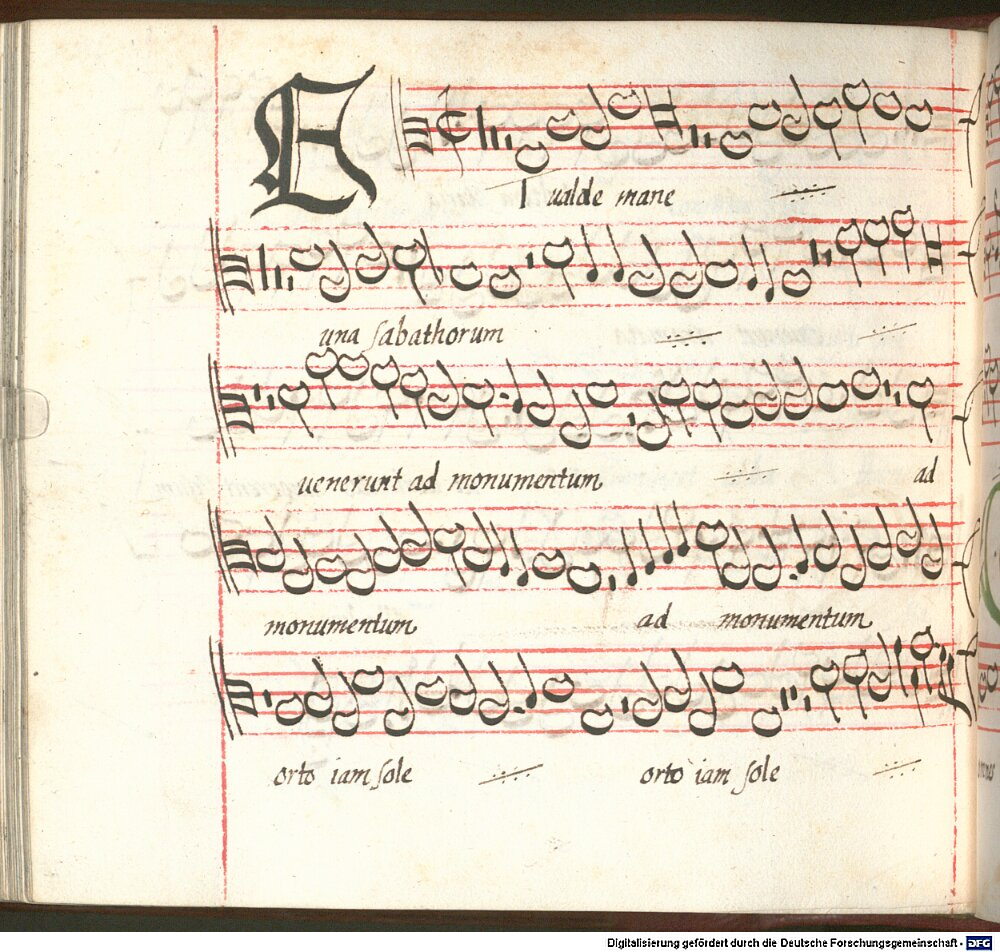 Et ualde mane
una sabathorum
uenerunt ad monumentum ad
monumentum ad monumentum
orto iam sole orto iam sole
Digitalisierung gefördert durch die Deutsche Forschungsgemeinschaft - DFG